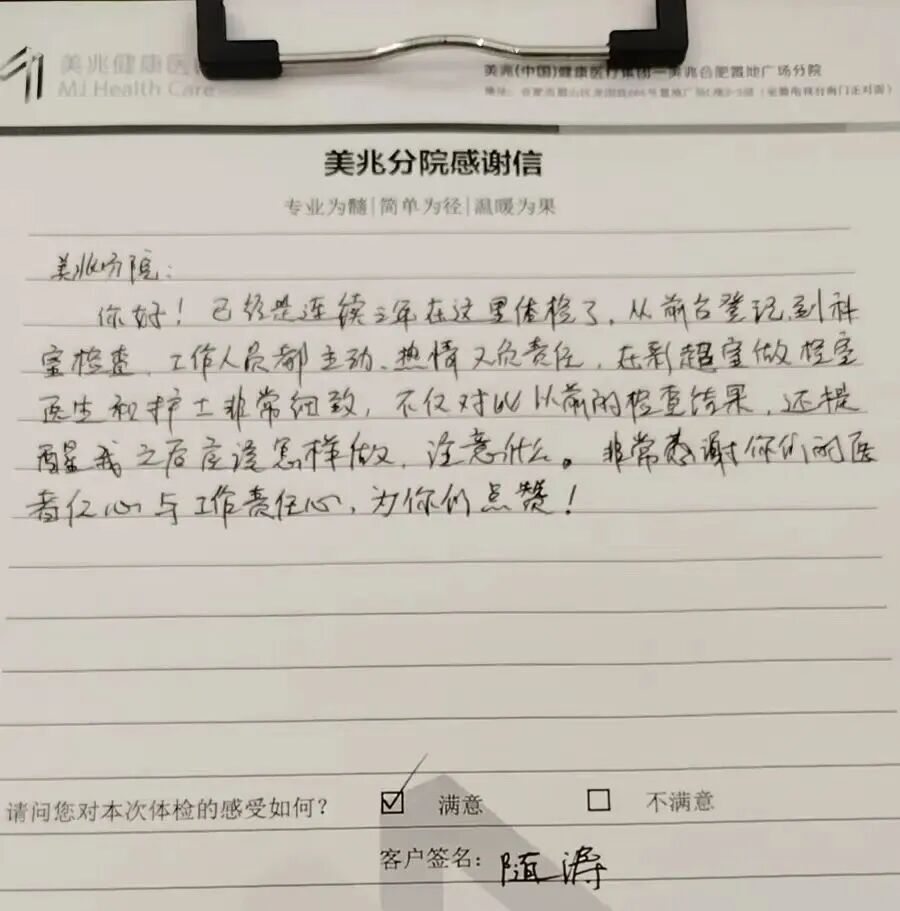 美兆健康医
MJ Health Care
美兆(中国)健康医疗集团—美兆合肥置地广场分院
美兆分院感谢信
专业为髓|简单为径|温暖为果
美兆分院：
你好！已经是连续三年在这里体检了，从前台登记到科
室检查，工作人员都主动、热情又负责任，在彩超室做检查
医生和护士非常细致，不仅对比以前的检查结果，还提
醒我之后应该怎样做，注意什么。非常感谢你们的医
者仁心与工作责任心，为你们点赞！
请问您对本次体检的感受如何？ 满意 不满意
客户签名：陆涛